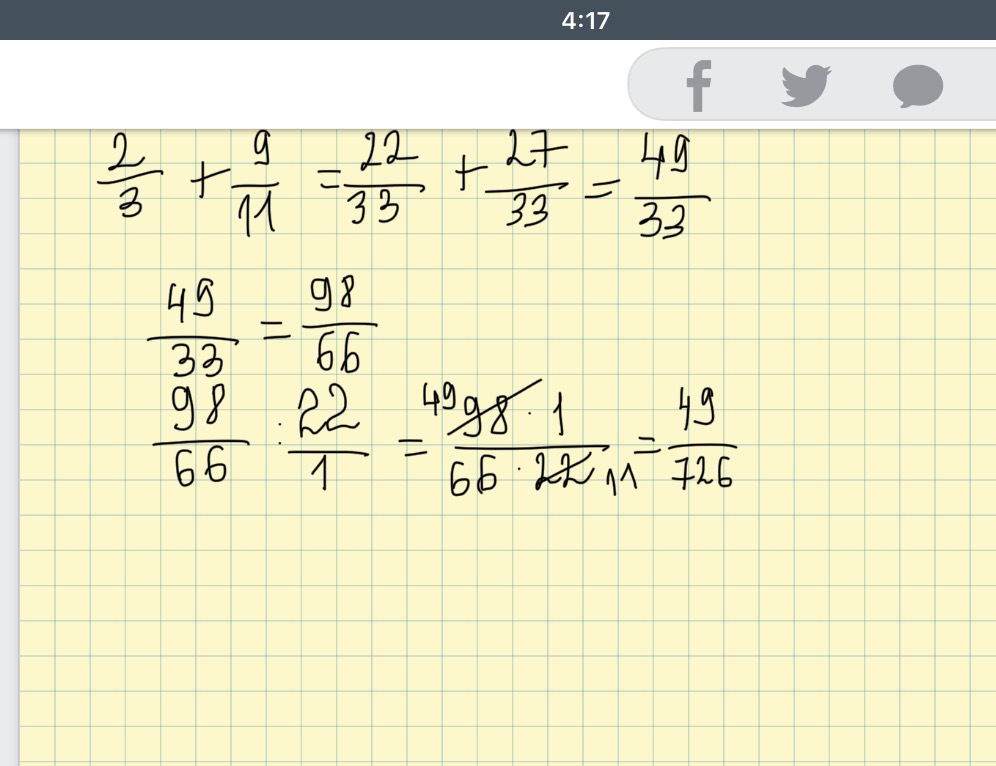 4:17
2/3 + 9/11 = 22/33 + 27/33 = 49/33
49/33 = 98/66
98/66 : 22/1 = 49 98 · 1 / 66 · 22 11 = 49/726